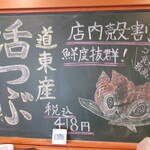 店内殻割
鮮度抜群!
道東産
活つぶ
税込
418円